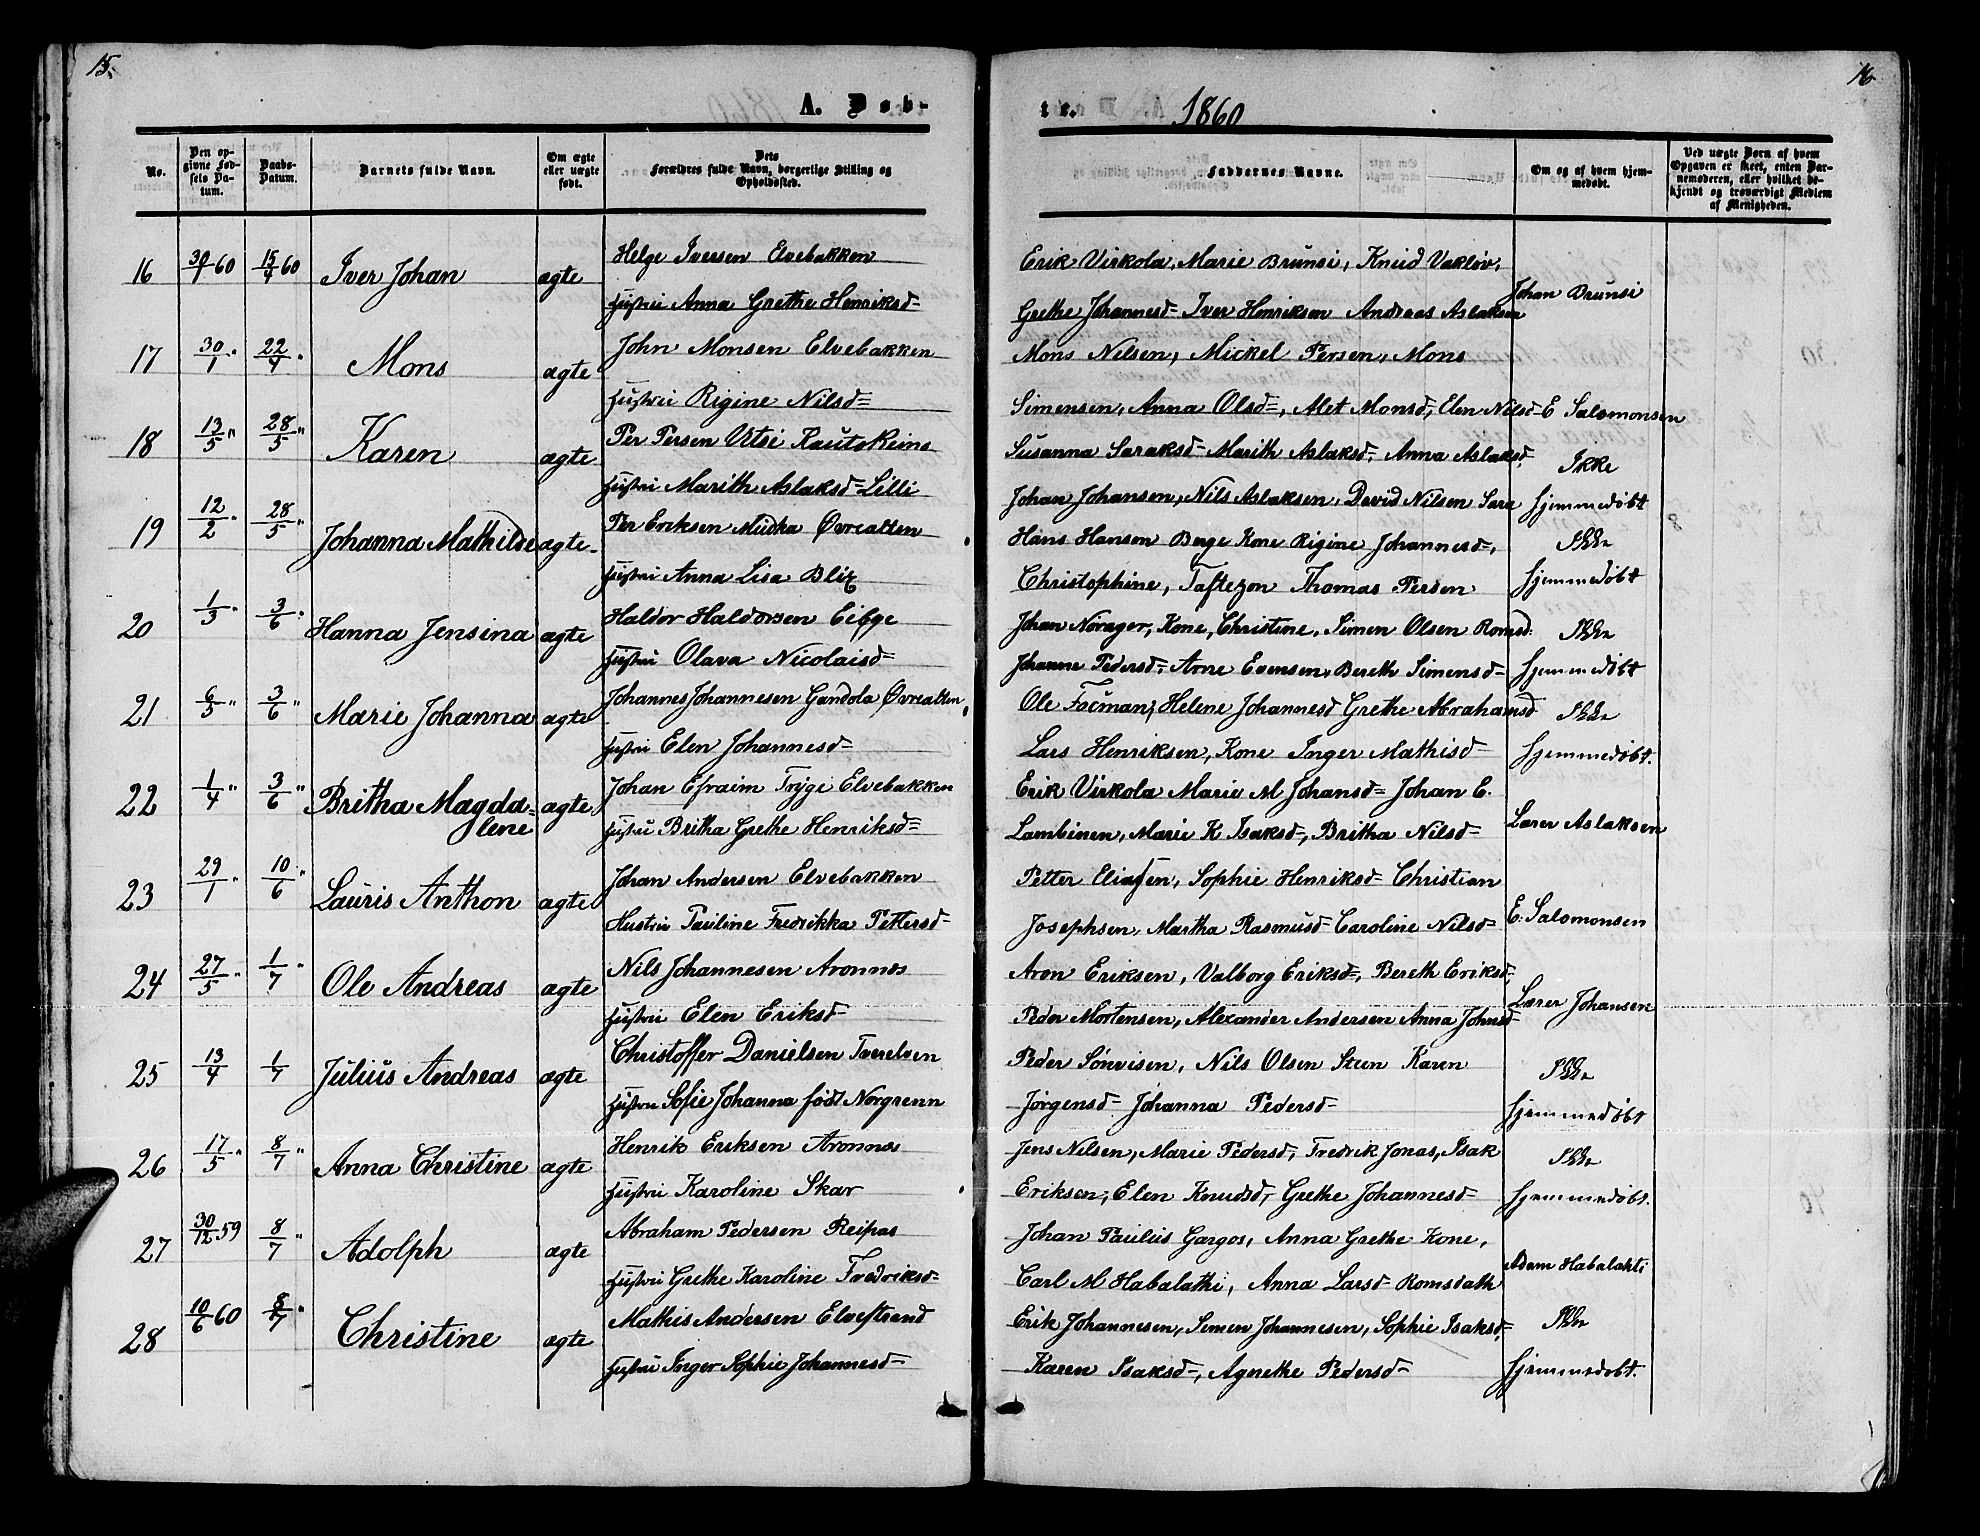 15.
16
A. Døb-
te. 1860
No.
Den opgivne Fødsels Datum.
Daabs-Datum.
Barnets fulde Navn.
Om ægte eller uægte født.
Dets Forældres fulde Navn, borgerlige Stilling og Opholdssted.
Faddernes Navne.
Om og af hvem hjemmedøbt.
Ved uægte Børn af hvem Opgaven er skeet, enten Barnemoderen, eller hvilket bekjendt og troværdigt Medlem af Menigheden.
16 30/1 60 15/4 60 Iver Johan ægte Helge Iversen Elvebakken
Hustru Anna Grethe Henriksd=
Erik Virkola, Marie Brunsi, Knud Vakløv,
Grethe Johannesd= Iver Henriksen Andreas Aslaksen
Johan Brunsi
17 30/1 " 22/4 " Mons ægte John Monsen Elvebakken
Hustru Rigine Nilsd=
Mons Nilsen, Mickel Persen, Mons
Simensen, Anna Olsd=, Met Monsd, Elen Nilsd=
E Salomonsen
18 13/5 " 28/5 " Karen ægte Per Persen Utsi Kautokeino
Hustru Marith Aslaksd= Lilli
Susanna Saraksd= Marith Aslaksd, Anna Aslaksd,
Johan Johansen, Nils Aslaksen, David Nilsen Sara
Ikke
hjemmedøbt
19 12/2 " 28/5 " Johanna Mathilde ægte Per Eriksen Mudka Øvrealten
Hustru Anna Lisa Blix
Hans Hansen Berge Kone Rigine Johannesd=,
Christophine, Taftezon Thomas Persen
Ikke
hjemmedøbt
20 1/3 " 3/6 " Hanna Jensina ægte Haldor Haldorsen Eibye
Hustru Olava Nicolaisd=
Johan Norager, Kone, Christine, Simen Olsen Romsd:
Johanne Pedersd=, Arne Evensen, Bereth Simensd=
Ikke
hjemmedøbt
21 6/5 " 3/6 " Marie Johanna ægte Johannes Johannesen Gandola Øvrealten,
Hustru Elen Johannesd=
Ole Facman, Helene Johannesd Grethe Abrahamsd
Lars Henriksen, Kone Inger Mathisd=
Ikke
hjemmedøbt.
22 1/4 " 3/6 " Britha Magdalene ægte Johan Efraim Tryge Elvebakken
Hustru Britha Grethe Henriksd=
Erik Virkola Marie M Johansd= Johan E.
Lambinen, Marie K Isaksd=, Britha Nilsd=
Lærer Aslaksen
23 29/1 " 10/6 " Lauris Anthon ægte Johan Andersen Elvebakken
Hustru Pauline Fredrikka Pettersd=
Petter Eliassen, Sophie Henriksd= Christian
Josephsen, Martha Rasmusd= Caroline Nilsd=
E. Salomonsen
24 27/5 " 1/7 " Ole Andreas ægte Nils Johannesen Aronnæs
Hustru Elen Eriksd=
Aron Eriksen, Valborg Eriksd=, Bereth Eriksd=,
Peder Mortensen, Alexander Andersen Anna Johnsd=
Lærer Johansen
25 13/4 1/7 Julius Andreas ægte Christoffer Danielsen Tverelven
Hustru Sofie Johanna født Norgrenn
Peder Sønvisen, Nils Olsen Steen Karen
Jørgensd= Johanna Pedersd=
Ikke
hjemmedøbt
26 17/5 " 8/7 " Anna Christine ægte Henrik Eriksen Aronnæs
Hustru Karoline Skar
Jens Nilsen, Marie Pedersd=, Fredrik Jonas, Isak
Eriksen, Elen Knudsd, Grethe Johannesd=
Ikke
hjemmedøbt.
27 30/12 59 8/7 Adolph ægte Abraham Pedersen Reipas
Hustru Grethe Karoline Fredriksd=
Johan Paulus Gargos, Anna Grethe Kone,
Carl M Habalathi, Anna Larsd= Romsdath
Adam Habalahti
28 10/6 60 8/7 " Christine ægte Mathis Andersen Elvestrand
Hustru Inger Sophie Johannesd=
Erik Johannesen, Semen Johannesen, Sophie Isaksd=,
Karen Isaksd=, Agnethe Pedersd=
Ikke
hjemmedøbt.